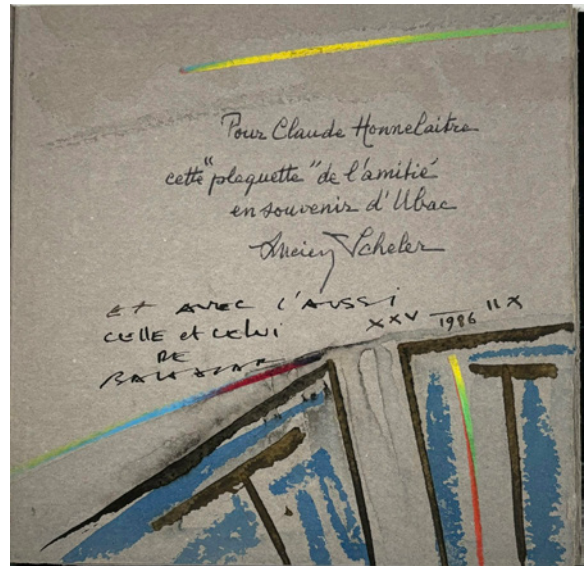 Pour Claude Honnelaitre
cette "plaquette" de l'amitié
en souvenir d'Ubac
Lucien Scheler
ET AVEC L'AUSSI
CELLE et CELUI
DE
BALTAZAR
XXV 1986 IIX